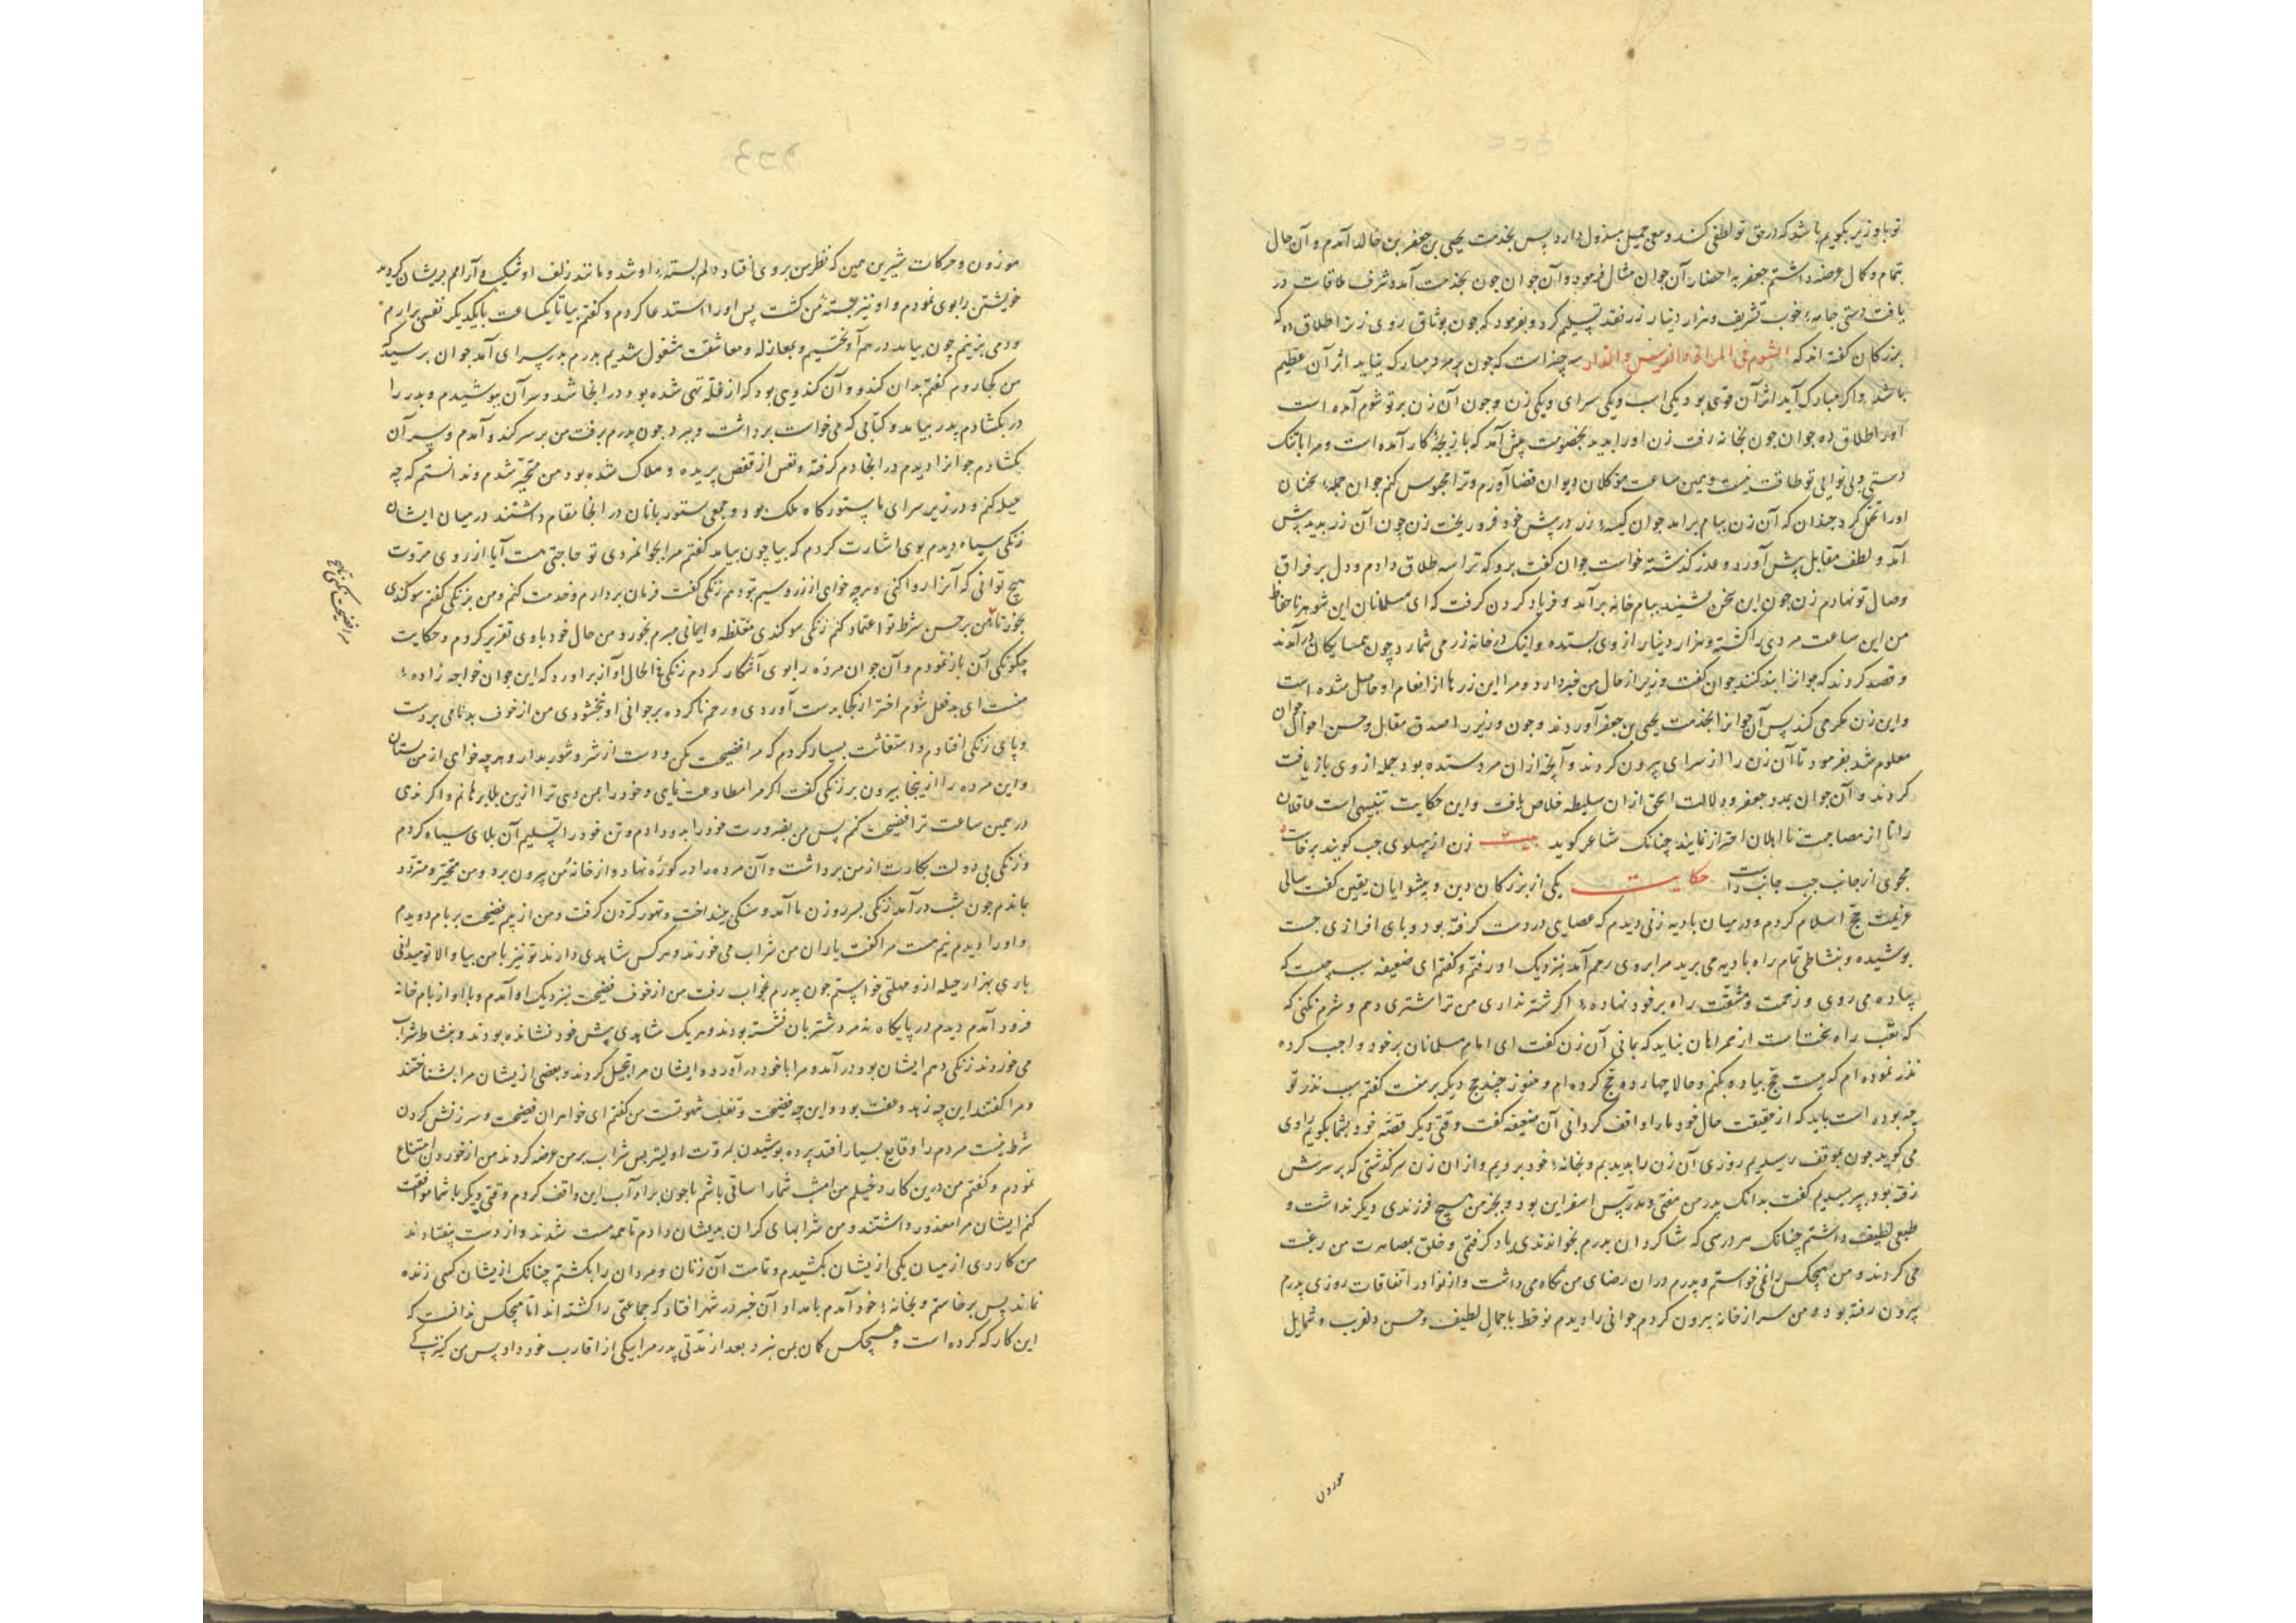 تو با وزیر بگویم باشد که در حق تو لطفی کند و سعی جمیل مبذول دارد پس بخدمت یحیی بن جعفر بن خالد آمدم و آن حال
بتمام و کمال عرضه داشتم جعفر به احضار آن جوان مثال فرمود و آن جوان چون بخدمت آمد و شرف ملاقات در
یافت دستی جامهٔ خوب تشریف و هزار دینار زر نقد تسلیم کرد و بفرمود که چون بوثاق روی زن را طلاق ده که
بزرگان گفته اند که الشوم فی المراة و الفرس و الدار سه چیز است که چون بر مرد مبارک نیاید اثر آن عظیم
باشد و اگر مبارک آید اثر آن قوی بود یکی اسب و یکی سرای و یکی زن و چون آن زن بر تو شوم آمده است
اورا طلاق ده جوان چون بخانه رفت زن اورا بدید بخصومت پیش آمد که باز بچه کار آمده است و مرا با تنک
دستی و بی نوایی تو طاقت نیست و همین ساعت موکلان دیوان قضا آرم و ترا محبوس کنم جوان جمله سخنان
اورا تحمل کرد چندان که آن زن ببام برآمد جوان کیسهٔ زر در پیش خود فرو ریخت زن چون آن زر بدید پیش
آمد و لطف مقابل پیش آورد و عذر گذشته خواست جوان گفت برو که ترا سه طلاق دادم و دل بر فراق
وصال تو نهادم زن چون این سخن بشنید ببام خانه برآمد و فریاد کردن گرفت که ای مسلمانان این شوهر ناحفاظ
من این ساعت مردی را کشته و هزار دینار از وی بستده و اینک در خانه زر می شمارد چون همسایگان در آمدند
و قصد کردند که جوانرا بند کنند جوان گفت وزیر از حال من خبر دارد و مرا این زرها از انعام او حاصل شده است
و این زن مکر می کند پس آن جوانرا بخدمت یحیی بن جعفر آوردند و چون وزیر را صدق مقال و حسن احوال جوان
معلوم شد بفرمود تا آن زن را از سرای بیرون کردند و آنچه ازان مرد ستده بود جمله از وی باز یافت
کردند و آن جوان بمدد جعفر و دلالت اسحق ازان سلیطه خلاص یافت و این حکایت تنبیهی است عاقلان
را تا از مصاحبت نا اهلان احتراز نمایند چنانک شاعر گوید بیت زن از پهلوی چپ گویند برخاست
مجوی از جانب چپ جانب راست حکایت یکی از بزرگان دین و پیشوایان یقین گفت سالی
عزیمت حج اسلام کردم و در میان بادیه زنی دیدم که عصایی در دست گرفته بود و پای افزاری چست
پوشیده و بنشاطی تمام راه بادیه می برید مرا بروی رحم آمد بنزدیک او رفتم و گفتم ای ضعیفه سبب چیست که
پیاده می روی و زحمت و مشقت راه بر خود نهادهٔ اگر شتر نداری من ترا اشتری دهم و شرم نکنی که
که تعب راه سخت است از همراهان نباید که بمانی آن زن گفت ای امام مسلمانان بر خود واجب کرده
نذر نموده ام که بیست حج پیاده بکنم و حالا چهارده حج کرده ام و هنوز چند حج دیگر بر منست گفتم سبب نذر تو
چه بوده است باید که از حقیقت حال خود ما را واقف گردانی آن ضعیفه گفت وقتی دیگر قصهٔ خود بشما بگویم راوی
می گوید چون بموقف رسیدیم روزی آن زن را بدیدیم و بخانهٔ خود بردیم و از ان زن سرگذشتی که بر سرش
رفته بود بپرسیدیم گفت بدانک پدر من مفتی و مدرس اسفراین بود و بجز من هیچ فرزندی دیگر نداشت و
طبعی لطیف داشتم چنانک هر درسی که شاگردان پدرم بخواندندی یاد گرفتمی و خلق بمصاهرت من رغبت
می کردند و من هیچکس را نمی خواستم و پدرم دران رضای من نگاه می داشت و از نوادر اتفاقات روزی پدرم
بیرون رفته بود و من سر از خانه بیرون کردم جوانی را دیدم نو خط با جمال لطیف و حسن دلفریب و شمایل
موزون
موزون و حرکات شیرین همین که نظر من بروی افتاد دلم بستهٔ او شد و مانند زلف او شکیب و آرامم پریشان گردید
خویشتن را بوی نمودم و او نیز بستهٔ من گشت پس اورا استدعا کردم و گفتم بیا تا یکساعت با یکدیگر نفسی برآریم
و دمی بزنیم چون بیامد در هم آویختیم و بمغازله و معاشقت مشغول شدیم پدرم بدر سرای آمد جوان ترسید که
من کجا روم گفتم بدان کندو و آن کندویی بود که از غله تهی شده بود در انجا شد و سر آن بپوشیدم و پدر را
در بگشادم پدر بیامد و کتابی که می خواست برداشت و ببرد چون پدرم برفت من بر سر کندو آمدم و سر آن
بگشادم جوانرا دیدم در انجا دم گرفته و نفس از قفص پریده و هلاک شده بود من متحیر شدم و ندانستم که چه
حیله کنم و در زیر سرای ما ستورگاه ملک بود و جمعی ستوربانان در انجا مقام داشتند در میان ایشان
زنگی سیاه دیدم بوی اشارت کردم که بیا چون بیامد گفتم مرا بجوانمردی تو حاجتی هست آیا از روی مروت
هیچ توانی که آنرا روا کنی و هر چه خواهی از زر و سیم بتو دهم زنگی گفت فرمان بردارم و خدمت کنم و من بزنگی گفتم سوگندی
بخور تا من بر حسن شرط تو اعتماد کنم زنگی سوگندی مغلظه و ایمانی مبرم بخورد و من حال خود با وی تقریر کردم و حکایت
چگونگی آن باز نمودم و آن جوان مرده را بوی آشکار کردم زنگی فی الحال آواز برآورد که این جوان خواجه زادهٔ
منست ای بد فعل شوم اختر از کجا بدست آوردی و رحم ناکرده بر جوانی او بخشودی من از خوف بدنامی بر دست
و پای زنگی افتادم و استغاثت بسیار کردم که مرا فضیحت مکن و دست از شر و شور بدار و هر چه خواهی از من بستان
و این مرده را ازینجا بیرون بر زنگی گفت اگر مرا مطاوعت نمایی و خود را بمن دهی ترا ازین بلا برهانم و اگر ندی
در همین ساعت ترا فضیحت کنم پس من بضرورت خود را بدو دادم و تن خود را تسلیم آن بلای سیاه کردم
و زنگی بی دولت بکارت از من برداشت و آن مرده را در کوزه نهاد و از خانهٔ من بیرون برد و من متحیر و متردد
بماندم چون شب درآمد زنگی بسر روزن ما آمد و سنگی بینداخت و تهور کردن گرفت و من از بیم فضیحت بر بام دویدم
و اورا دیدم نیم مست مرا گفت یاران من شراب می خورند و هر کس شاهدی دارند تو نیز با من بیا و الا تو میدانی
باری بهزار حیله ازو مهلتی خواستم چون پدرم بخواب رفت من از خوف فضیحت بنزدیک او آمدم و با او از بام خانه
فرود آمدم دیدم در پایگاه نه مرد شتربان نشسته بودند و هر یک شاهدی پیش خود نشانده بودند و بنشاط شراب
می خوردند زنگی دهم ایشان بود درآمد و مرا با خود درآورد و ایشان مرا تبجیل کردند و بعضی از یشان مرا بشناختند
و مرا گفتند این چه زهد و عفت بود و این چه فضیحت و تغلب شهوتست من گفتم ای خواهران فضیحت و سرزنش کردن
شرط نیست مردم را وقایع بسیار افتد پرده پوشیدن بمروت اولیتر پس شراب بر من عرضه کردند من از خوردن امتناع
نمودم و گفتم من درین کار دخیلم من امشب شما را ساقی باشم تا چون بر آداب این واقف گردم وقتی دیگر با شما موافقت
کنم ایشان مرا معذور داشتند و من شرابهای گران بدیشان دادم تا همه مست شدند و از دست بیفتادند
من کاردی از میان یکی از یشان بکشیدم و تمامت آن زنان و مردان را بکشتم چنانک از یشان کسی زنده
نماند پس برخاستم و بخانهٔ خود آمدم بامداد آن خبر در شهر افتاد که جماعتی را کشته اند اما هیچکس ندانست که
این کار که کرده است و هیچکس گمان بمن نبرد بعد از مدتی پدر مرا بیکی از اقارب خود داد پس من کنیزکی